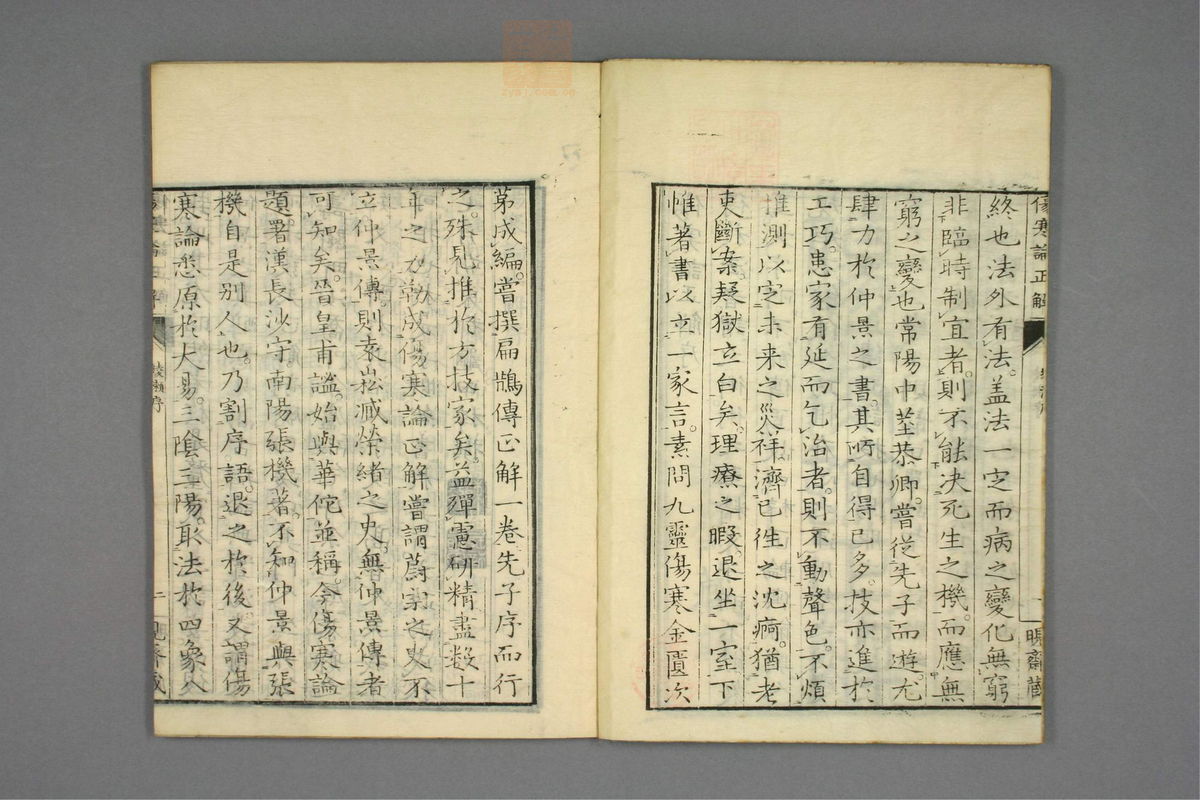 傷寒論正解
一
暘齋藏
終也。法外有法。盖法一定而病之變化無窮
非臨時制宜者。則不能決死生之機。而應無
窮之變也常陽中茎恭卿。嘗從先子而遊。尤
肆力於仲景之書。其所自得已多。技亦進於
工巧。患家有延而乞治者。則不動聲色。不煩
推測以定未来之災祥。濟已徃之沈痾。猶老
吏斷案。疑獄立白矣。理療之暇。退坐一室。下
帷著書以立一家言。素問九靈傷寒金匱次
苐成編。嘗撰扁鵲傳正解一卷先子序而行
之。殊見推於方技家矣。益殫慮研精盡数十
年之力勒成傷寒論正解嘗謂蔚宗之史不
立仲景傳。則袁崧臧荣緒之史。無仲景傳者
可知矣。晉皇甫謐。始與華佗並稱。今傷寒論
題。署漢長沙守。南陽張機著。不知仲景與張
機自是别人也。乃割序語。退之於後。又謂傷
寒論悉原於大易。三陰三陽。取法於四象八
二